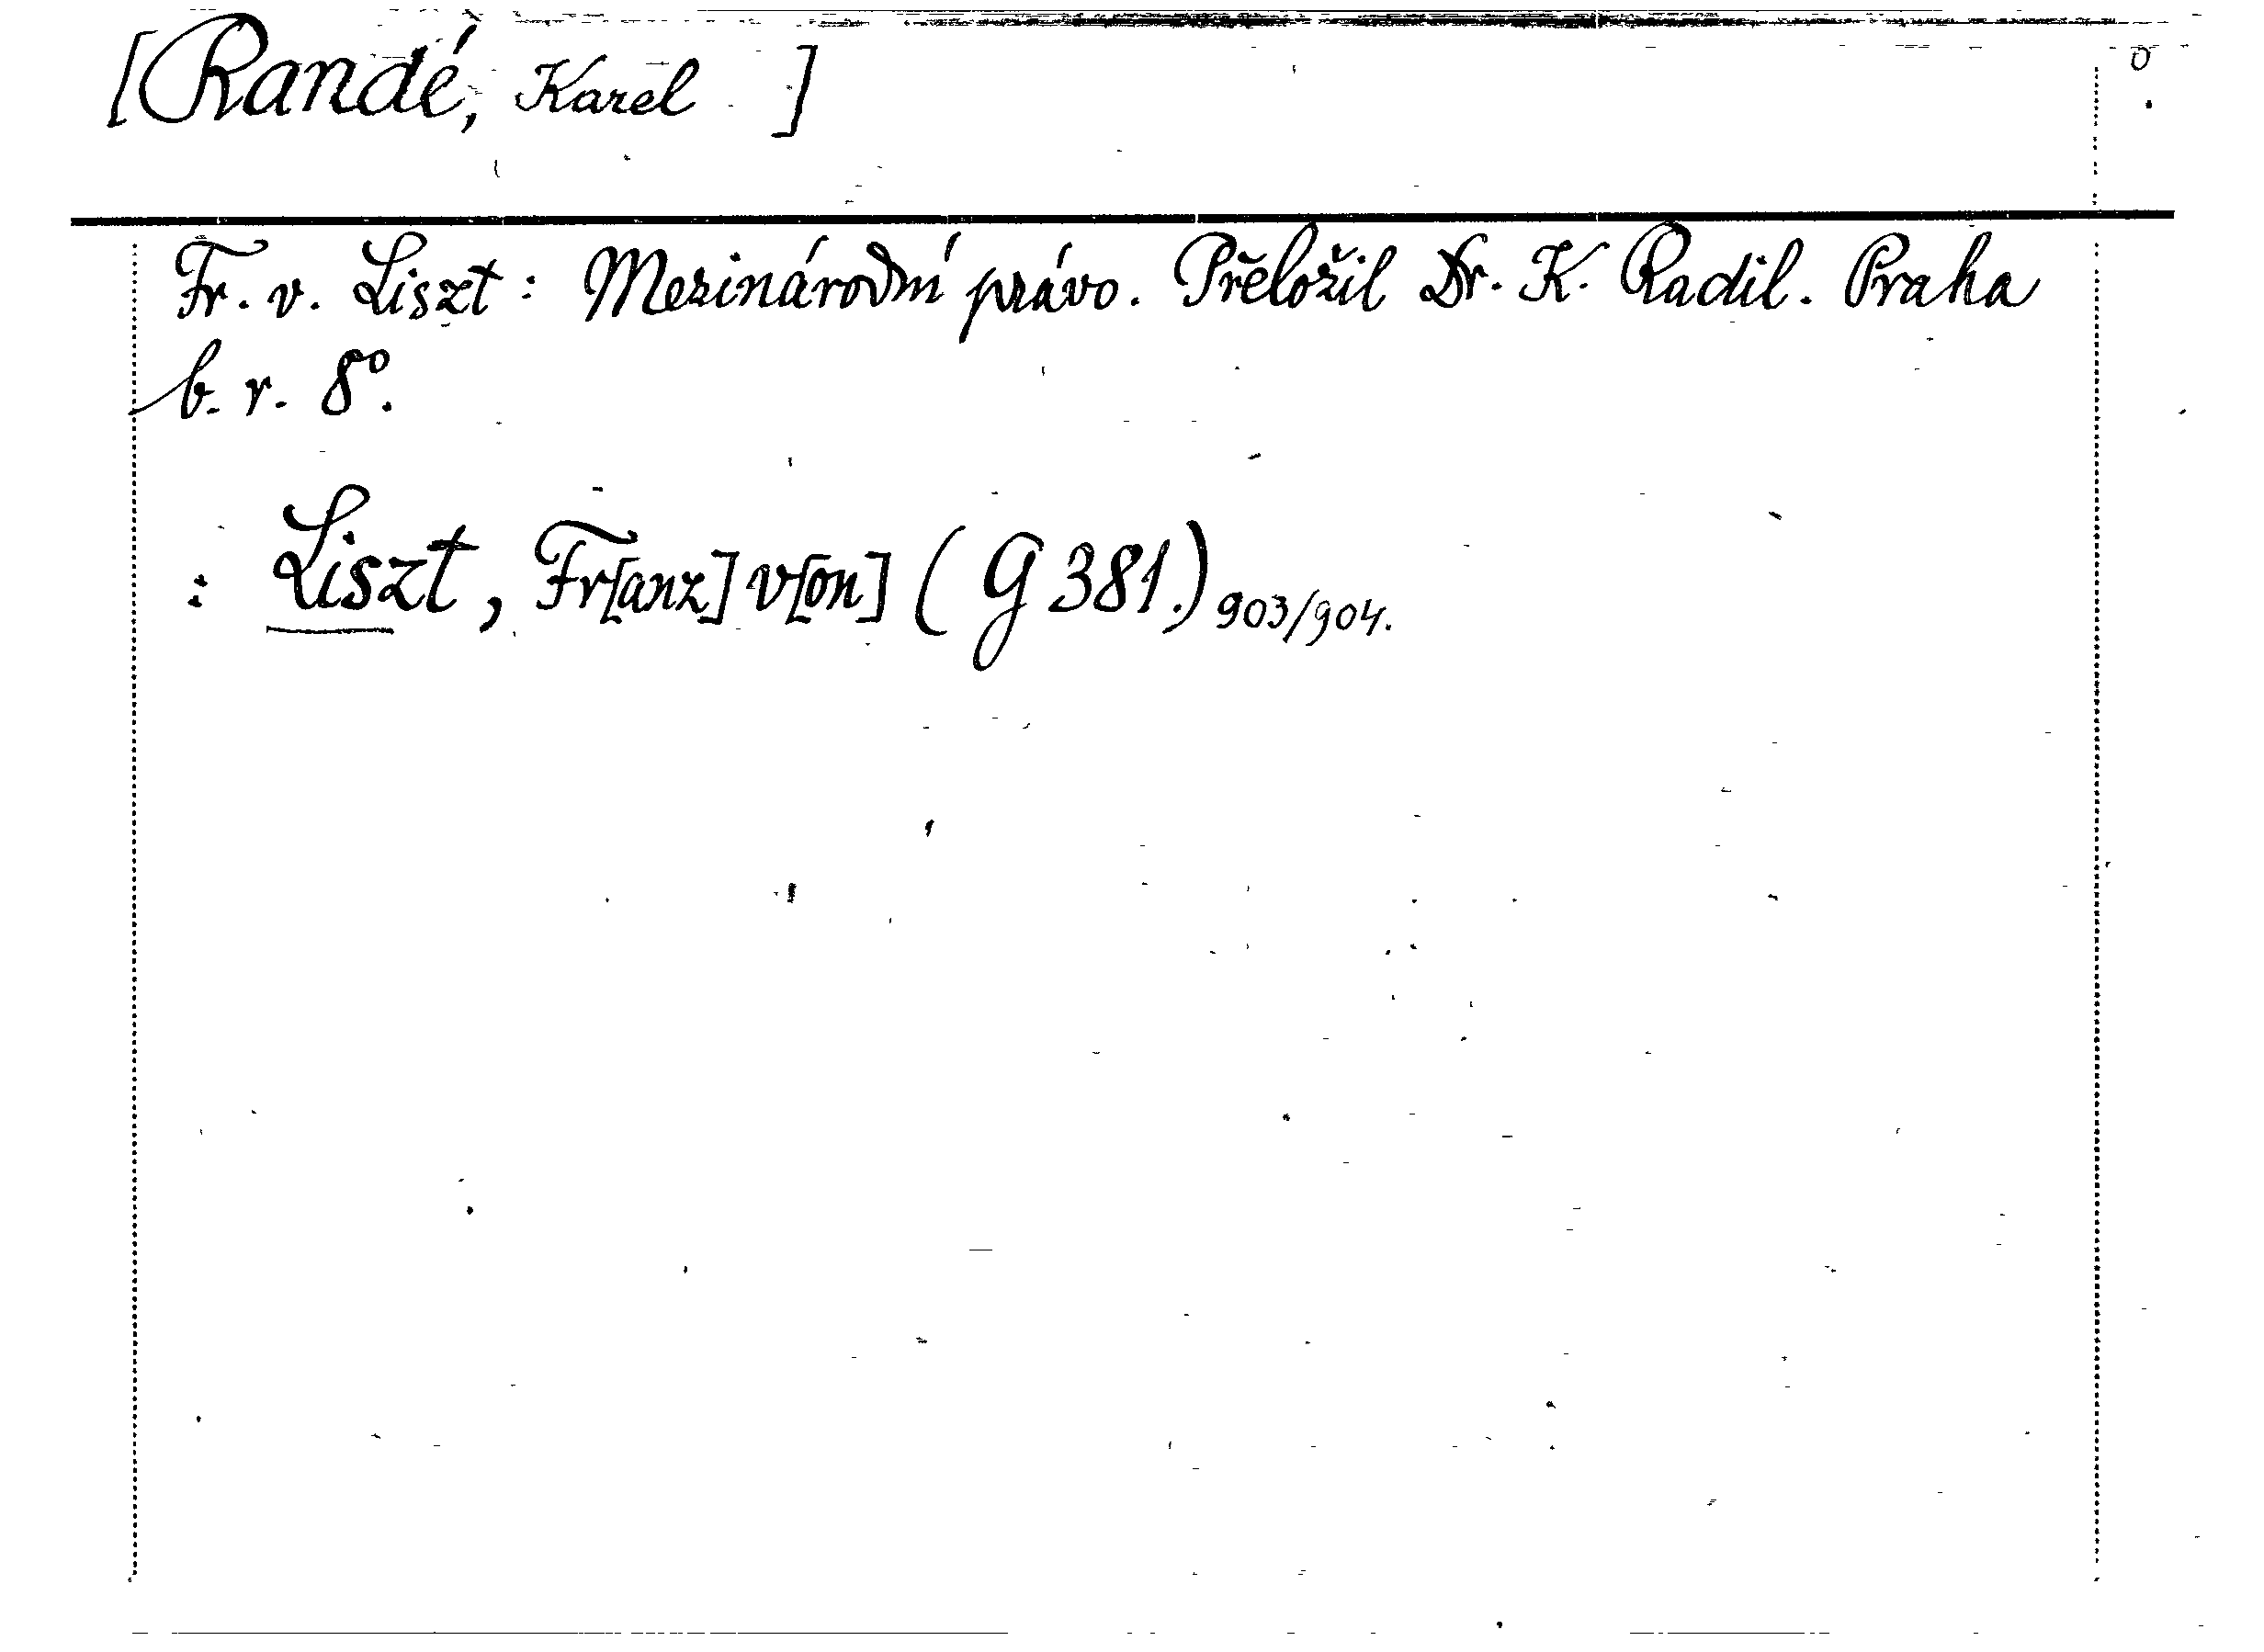 [Randé, Karel ]
Fr. v. Liszt: Mezinárodní právo. Přeložil Dr. K. Radil. Praha
b. r. 8°.
: Liszt, Fr[anz] v[on] (G 381.) 903/904.